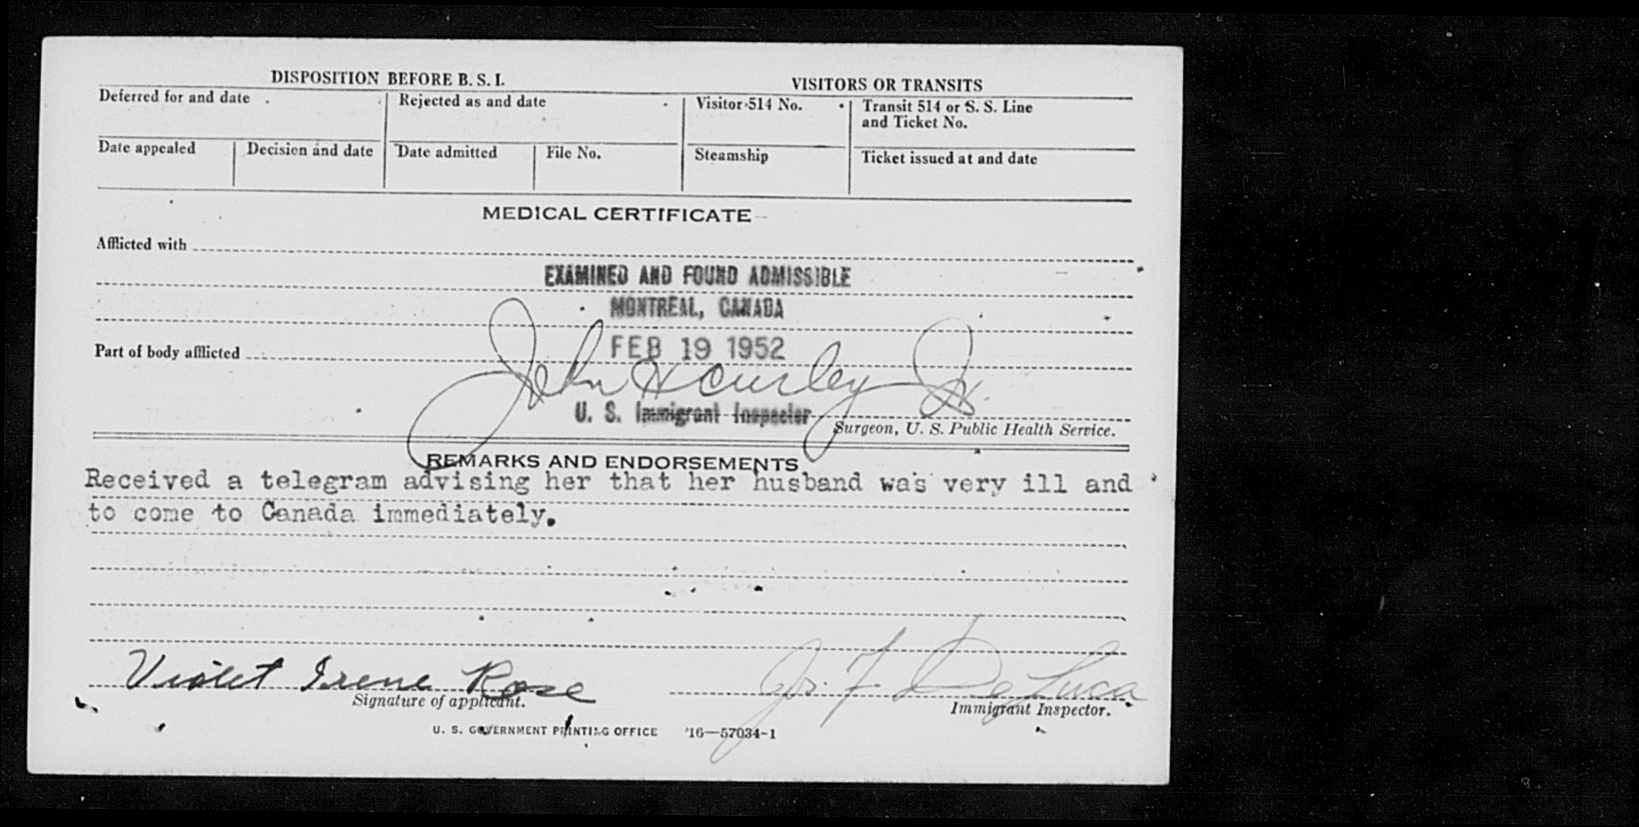 DISPOSITION BEFORE B. S. I.
VISITORS OR TRANSITS
Deferred for and date
Rejected as and date
Visitor 514 No.
Transit 514 or S. S. Line
and Ticket No.
Date appealed
Decision and date
Date admitted
File No.
Steamship
Ticket issued at and date
MEDICAL CERTIFICATE
Afflicted with
EXAMINED AND FOUND ADMISSIBLE
MONTREAL, CANADA
Part of body afflicted
FEB 19 1952
John H Curley Jr.
U. S. Immigrant Inspector
Surgeon, U. S. Public Health Service.
REMARKS AND ENDORSEMENTS
Received a telegram advising her that her husband was very ill and
to come to Canada immediately.
Violet Irene Rose
F. De Luca
Signature of applicant.
Immigrant Inspector.
U. S. GOVERNMENT PRINTING OFFICE 16—57034-1